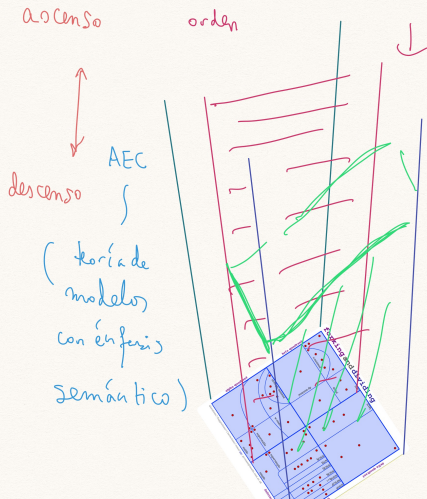 ascenso
orden
AEC
descenso
(teoría de
modelos
con énfasis
semántico)
forkinganddividing